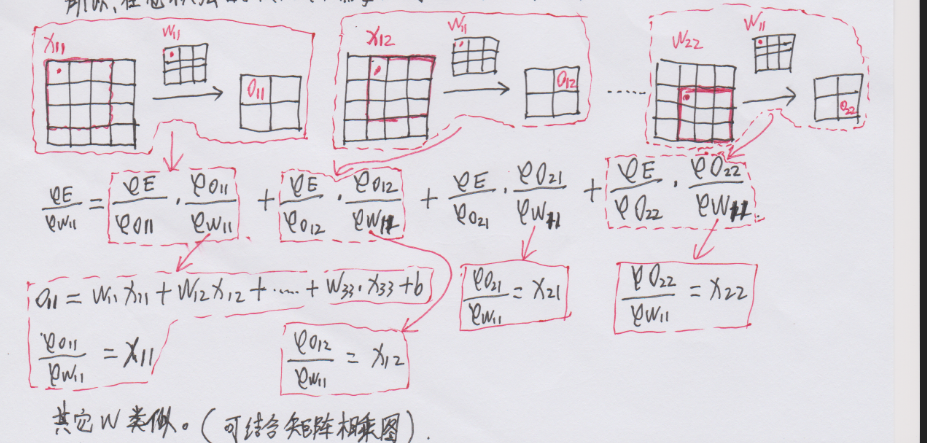 所以,在卷积层
X11 W11 O11 X12 W11 O12 ...... W22 W11 O22
∂E/∂W11 = ∂E/∂O11 · ∂O11/∂W11 + ∂E/∂O12 · ∂O12/∂W11 + ∂E/∂O21 · ∂O21/∂W11 + ∂E/∂O22 · ∂O22/∂W11
O11 = W11 X11 + W12 X12 + ..... + W33 · X33 + b
∂O21/∂W11 = X21
∂O22/∂W11 = X22
∂O11/∂W11 = X11
∂O12/∂W11 = X12
其它W类似。(可结合矩阵相乘图).